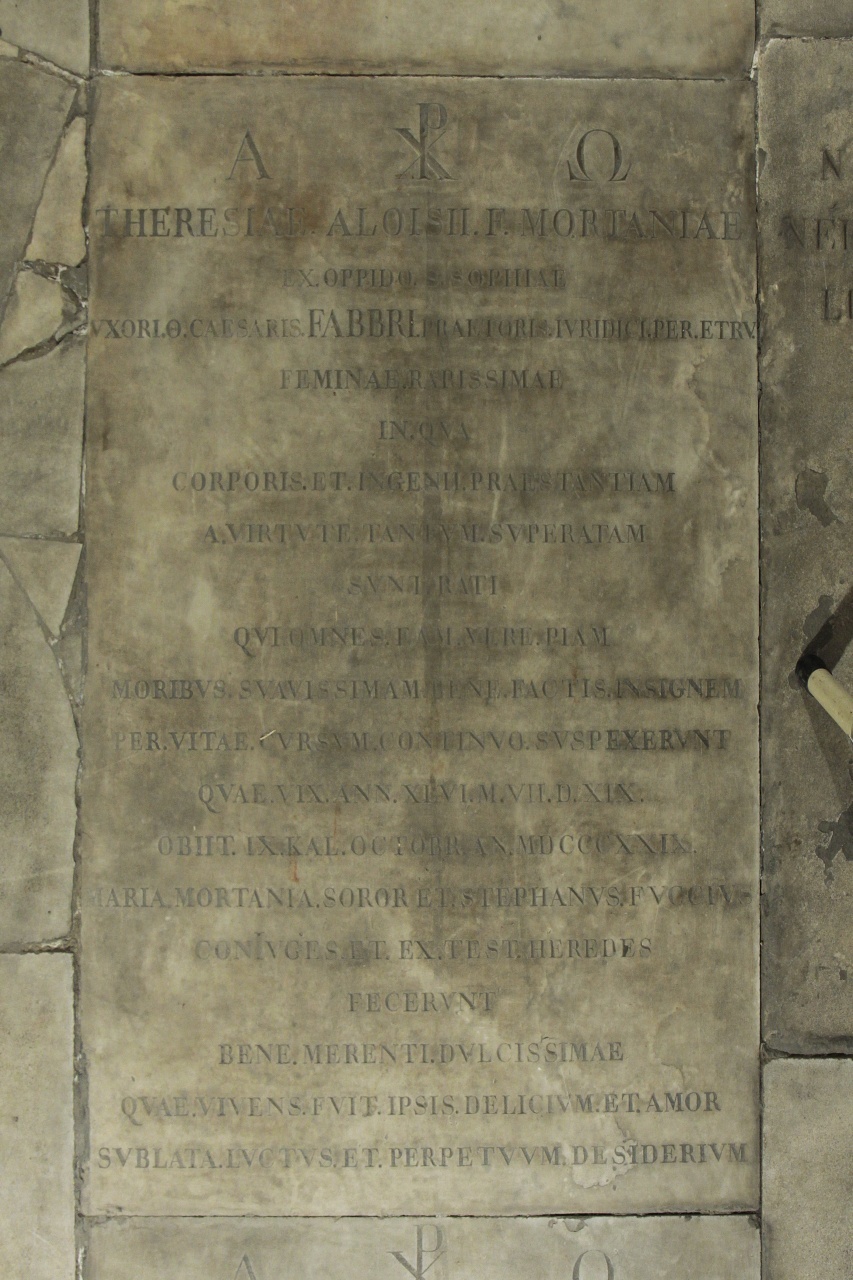 Α ☧ Ω
THERESIAE. ALOISII. F. MORTANIAE
EX. OPPIDO. S. SOPHIAE
VXORI. O. CAESARIS. FABBRI. PRAETORIS. IVRIDICI. PER. ETRV
FEMINAE. RARISSIMAE
IN. QVA
CORPORIS. ET. INGENII. PRAESTANTIAM
A. VIRTVTE. TANTVM. SVPERATAM
SVNT. RATI
QVI. OMNES. EAM. VERE. PIAM
MORIBVS. SVAVISSIMAM. BENE. FACTIS. INSIGNEM
PER. VITAE. CVRSVM. CONTINVO. SVSPEXERVNT
QVAE. VIX. ANN. XLVI. M. VII. D. XIX.
OBIIT. IX. KAL. OCTOBR. AN. MDCCCXXIX.
MARIA. MORTANIA. SOROR. ET. STEPHANVS.
CONIVGES. ET. EX. TEST. HEREDES
FECERVNT
BENE. MERENTI. DVLCISSIMAE
QVAE. VIVENS. FVIT. IPSIS. DELICIVM. ET. AMOR
SVBLATA. LVCTVS. ET. PERPETVVM. DESIDERIVM
Α ☧ Ω